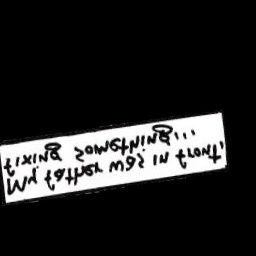 My father was in front,
fixing something...